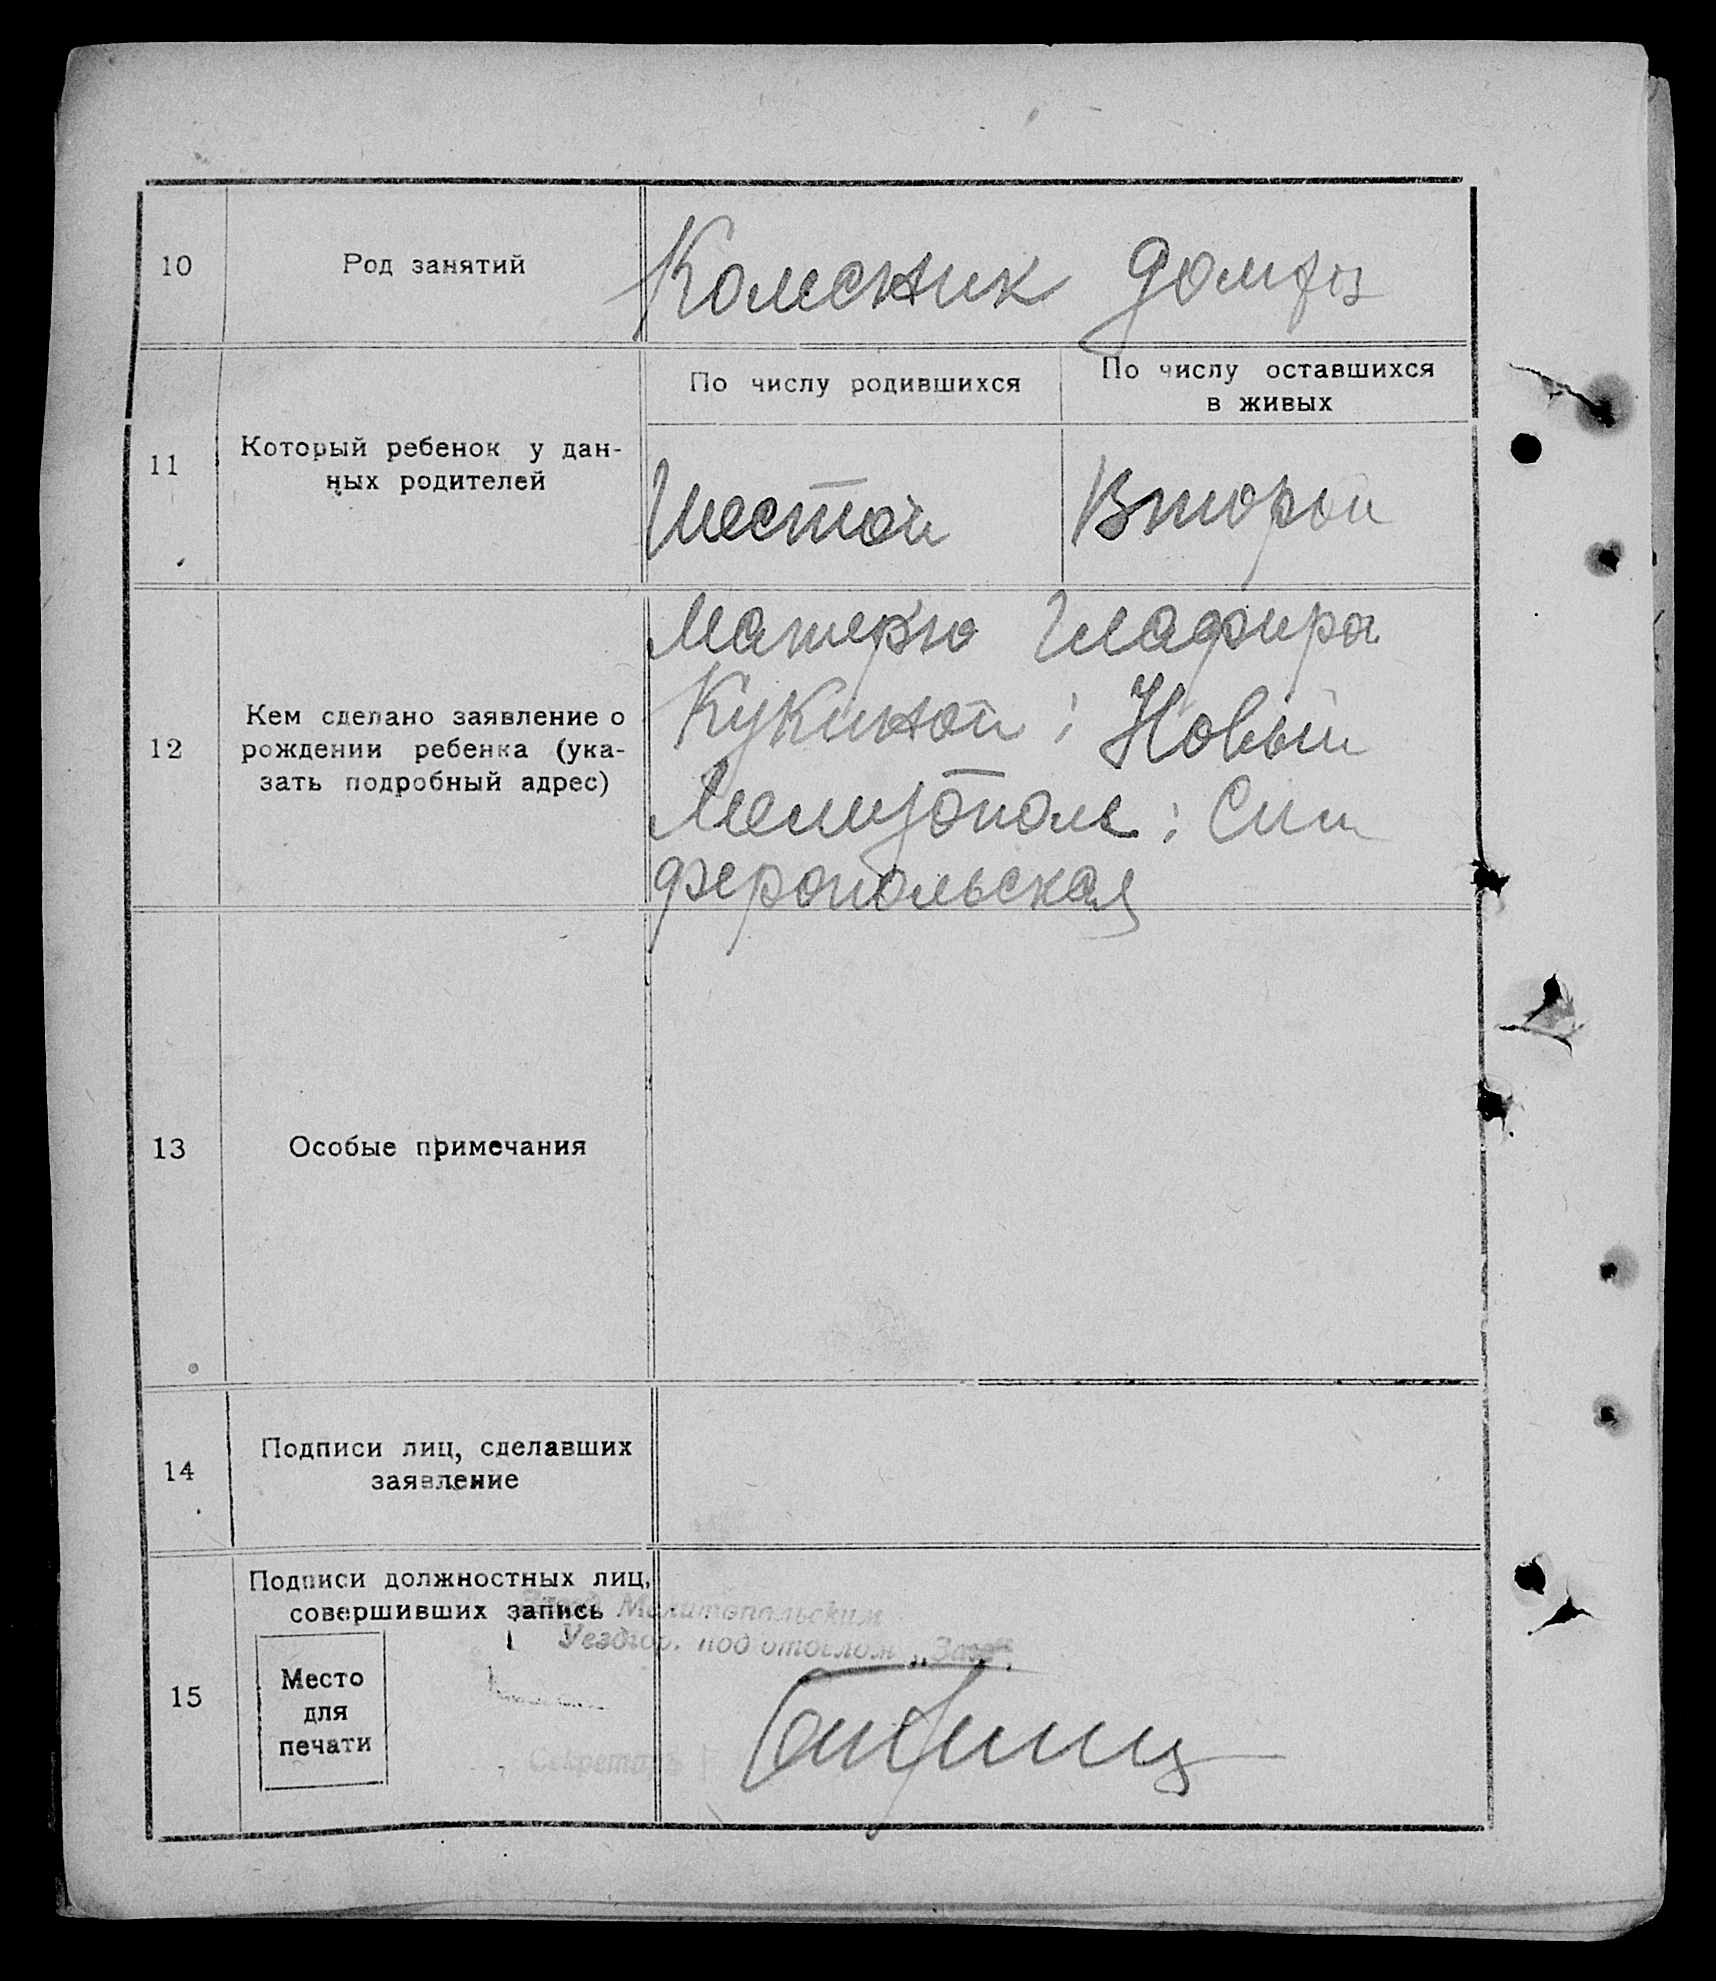 10
Род занятий
Колесник домхоз
11
Который ребенок у дан-
ных родителей
По числу родившихся
По числу оставшихся
в живых
Шестой
Второй
12
Кем сделано заявление о
рождении ребенка (ука-
зать подробный адрес)
Матерью Глафира
Кукиной; Новый
Мелитополь; Сим
феропольская
13
Особые примечания
14
Подписи лиц, сделавших
заявление
15
Подписи должностных лиц,
совершивших запись
Место
для
печати
Мелитопольским
под отделом „Загс“
Секретарь